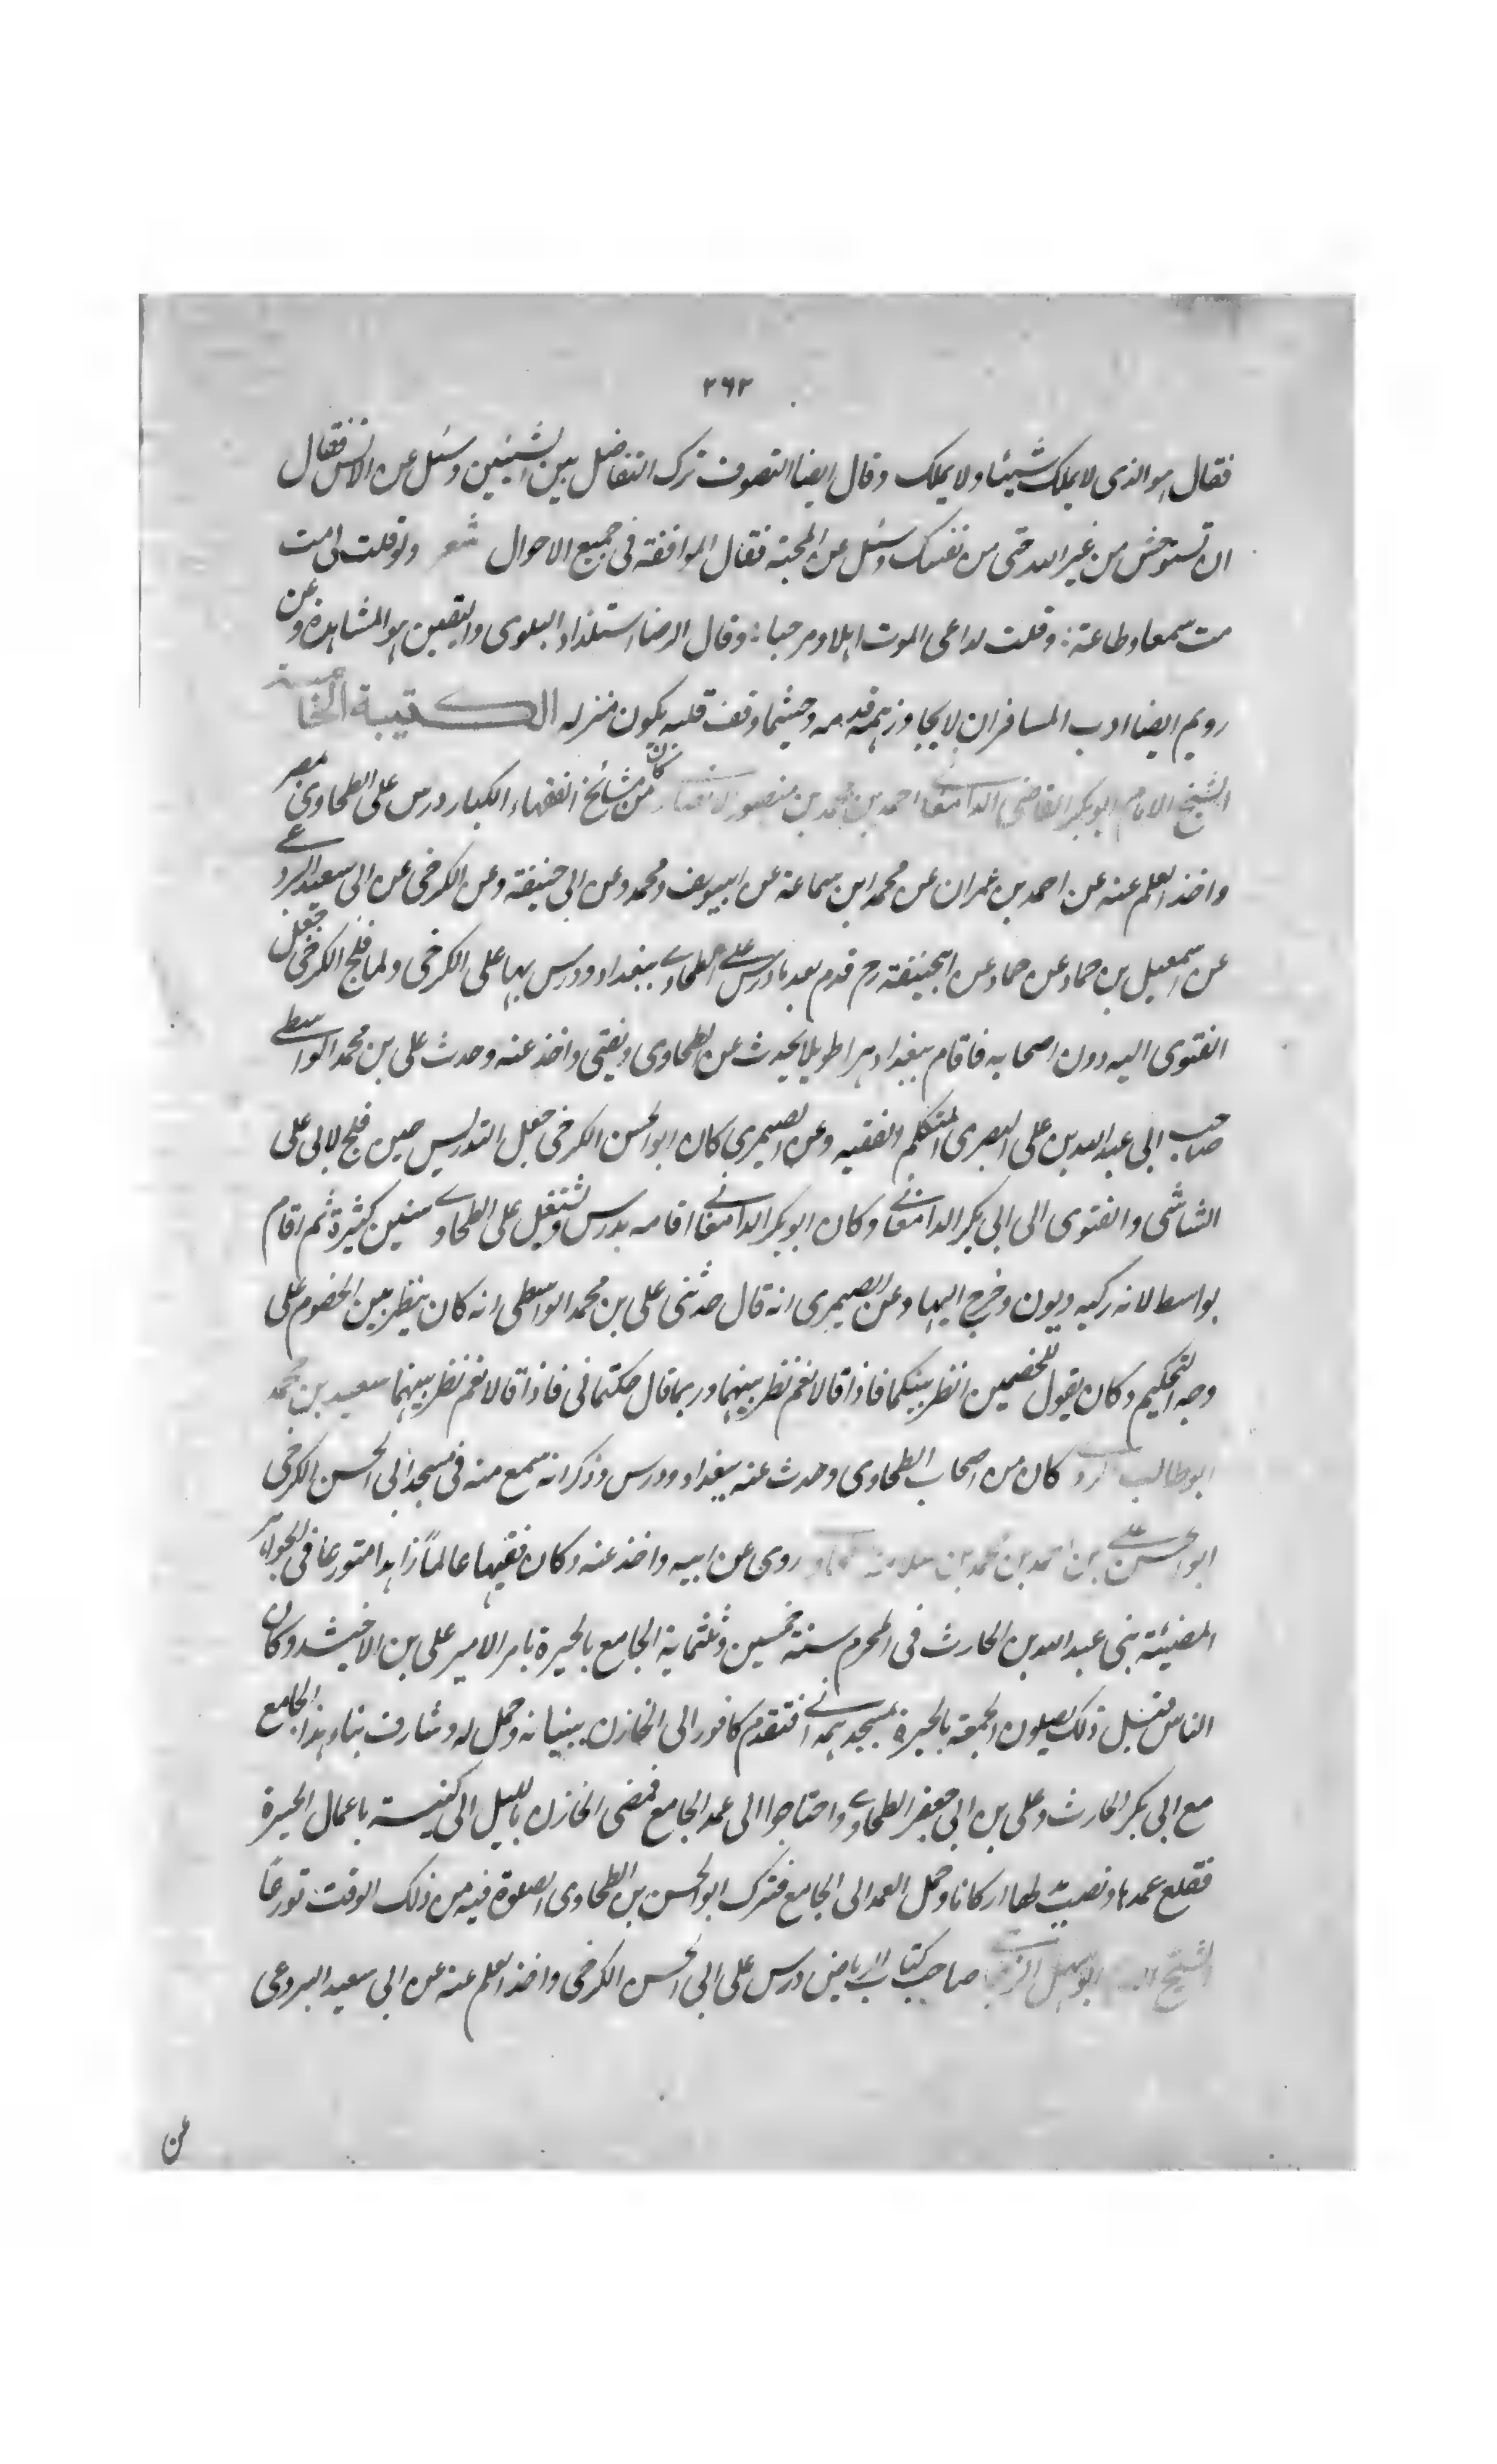 ٢٦٢
فقال هو الذى لا يملك شيئا ولا يملك وقال ايضا التصوف ترك التفاضل بين الشيئين وسئل عن الانس فقال
ان تستوحش من غير الله حتى من نفسك وسئل عن المحبة فقال الموافقة فى جميع الاحوال شعر ولو قلت لى مت
مت سمعا وطاعة : وقلت لداعى الموت اهلا ومرحبا : وقال الرضا استلذاذ البلوى واليقين هو المشاهدة وعن
رويم ايضا ادب المسافر ان لا يجاوز همه قدمه وحيثما وقف قلبه يكون منزله الكتيبة الخامسة
الشيخ الامام ابو بكر القاضى الدامغانى احمد بن محمد بن منصور الانصارى كان من مشائخ الفقهاء الكبار درس على الطحاوى بمصر
واخذ العلم عنه عن احمد بن عمران عن محمد ابن سماعة عن ابيوسف ومحمد وعن ابى حنيفة وعن الكرخى عن ابى سعيد البردعى
عن اسمعيل بن حماد عن حماد عن ابيحنيفة رح قدم بعد ما درس على الطحاوى ببغداد ودرس بها على الكرخى ولما فلج الكرخى فجعل
الفتوى اليه دون اصحابه فاقام ببغداد دهرا طويلا يحدث عن الطحاوى ويفتى واخذ عنه وحدث على بن محمد الواسطى
صاحب ابى عبد الله بن على البصرى المتكلم الفقيه وعن الصيمرى كان ابو الحسن الكرخى جعل التدريس حين فلج لابى على
الشاشى والفتوى الى ابى بكر الدامغانى وكان ابو بكر الدامغانى اقامه يدرس ويشتغل على الطحاوى سنين كثيرة ثم اقام
بواسط لانه ركبه ديون وخرج اليها وعن الصيمرى انه قال حدثنى على بن محمد الواسطى انه كان ينظر بين الخصوم على
وجه التحكيم وكان يقول للخصمين انظر بينكما فاذا قالا نعم نظر بينهما وربما قال حكمتمانى فاذا قالا نعم نظر بينهما سعيد بن محمد
ابو طالب كان من اصحاب الطحاوى وحدث عنه ببغداد ودرس وذكر انه سمع منه فى مسجد ابى الحسن الكرخى
ابو الحسن على بن احمد بن محمد بن سلامة روى عن ابيه واخذ عنه وكان فقيها عالمًا زاهدا متورعا فى الجواهر
المضيئة بنى عبد الله بن الحارث فى المحرم سنة خمسين وثلثماية الجامع بالجيزة بامر الامير على بن الاخشيد وكان
الناس قبل ذلك يصلون الجمعة بالجيزة بمسجد همدانى فتقدم كافور الى الخازن ببنيانه وحمل له وشارف بناء هذا الجامع
مع ابى بكر الحارث وعلى بن ابى جعفر الطحاوى واحتاجوا الى عمد الجامع فمضى الخازن بالليل الى كنيسة باعمال الجيزة
فقلع عمدها ونصب لها اركانا وحمل العمد الى الجامع فترك ابو الحسن بن الطحاوى الصلوة فيه من ذلك الوقت تورعًا
الشيخ ابو سهل صاحب كتاب الرياض درس على ابى الحسن الكرخى واخذ العلم عنه عن ابى سعيد البردعى
عن